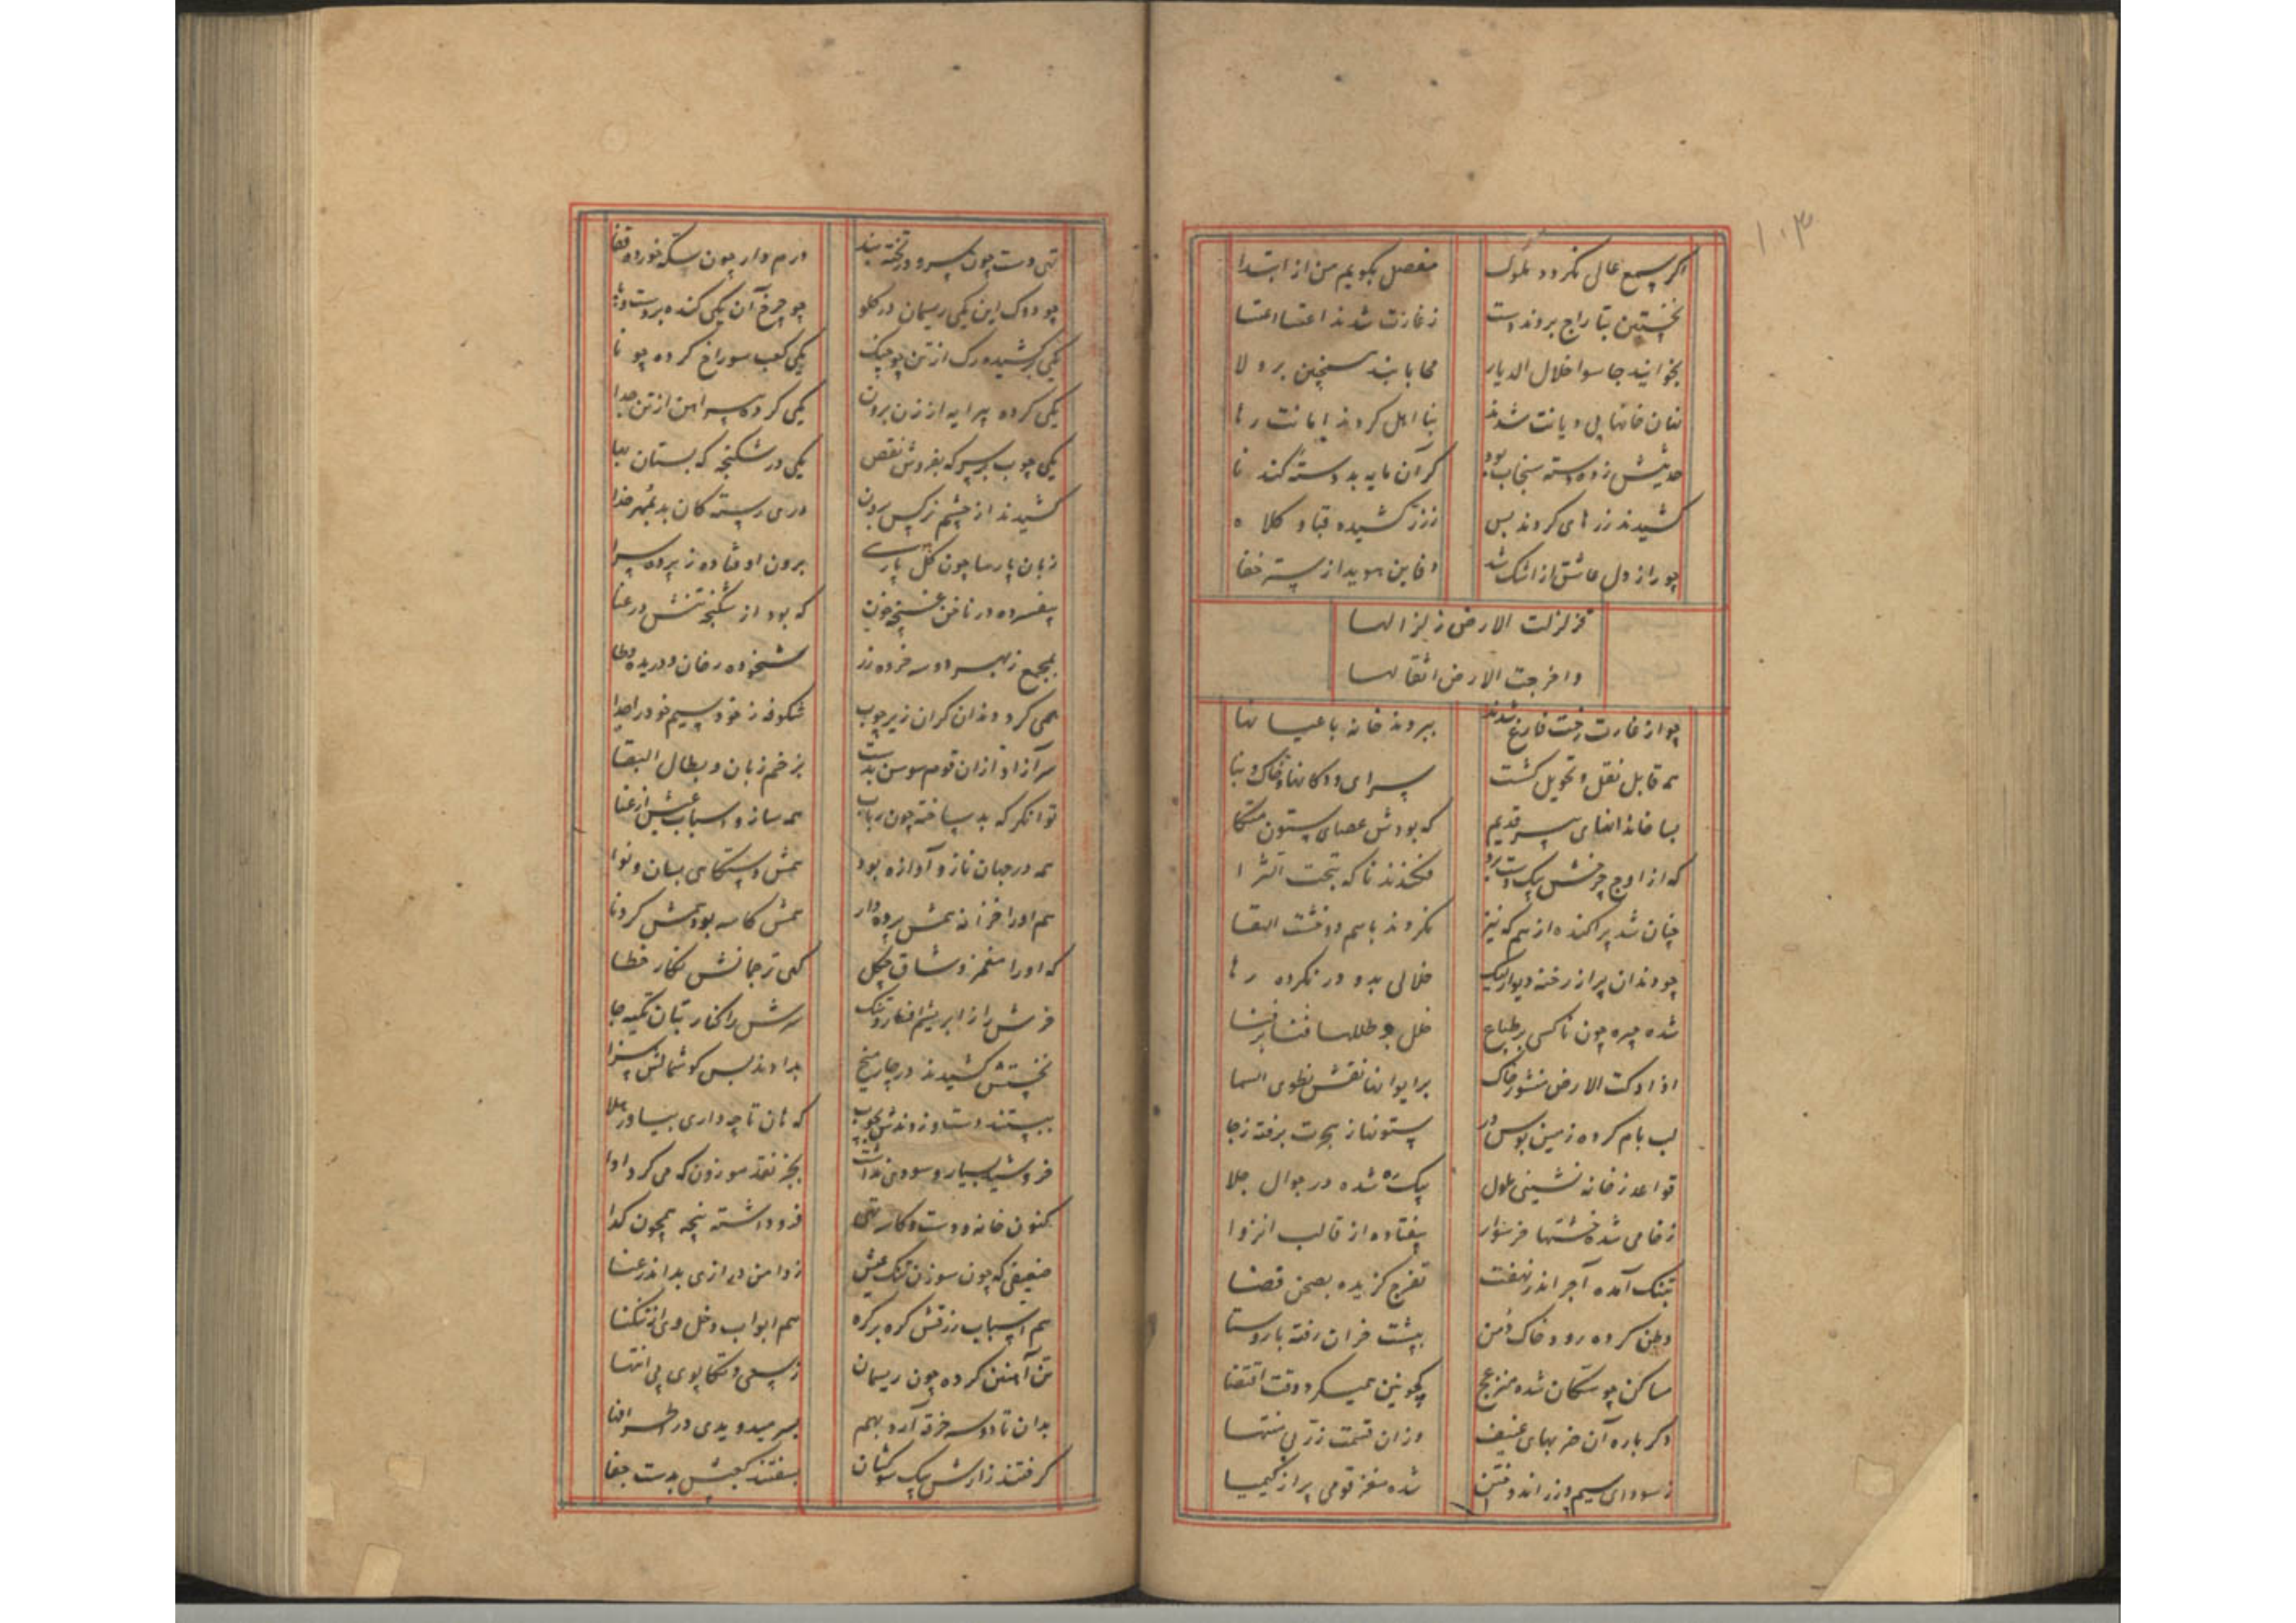 ۱۰۳
اکر بسمع عالی نکردد ملوک مفصل بکویم من از ابتدا
نخستین بتاراج بردند دست زغارت شدند اغنیا
بخوانید جاسوا خلال الدیار محابا بند بر ولا
خانها بی دیانت شدند بنا اهل کردند امانت رها
سنجاب بود کر آن مایه بدوسته کند تا
کشیدند زرهای کردند بس ززر کشیده قبا و کلاه
چو راز دل عاشق از اشک شد دفاین هویدا ز ستر خفا
فزلزلت الارض زلزالها
واخرجت الارض اثقالها
چو از غارت رخت فارغ شدند ببردند خانه باعیانها
همه قابل نقل و تحویل کشت سرای و دکانها و خاک و بنا
بسا خانهٔ پیر قدیم که بودش عصای ستون متکا
که از اوج چرخش بیک دست برد فکندند ناکه بتحت الثرا
چنان شد پراکنده از هم که نیز نکردند باهم دو خشت التقا
چو دندان پر از رخنه دیوار لیک خلالی بدو در نکرده رها
شده چیره چون ناکسی بر طباع خلل بر طللها فنا بر فنا
اذا دکت الارض منشور خاک بر ایوانها نقش نطوی السما
لب بام کرده زمین بوس در ستونها ز هجرت برفته زجا
قواعد زخانه نشینی ملول بیک ره شده در جوال جلا
زخامی شده خشتها خرسوار بیفتاده از قالب انزوا
بتنک آمده آجر اندر نهفت تفرج کزیده بصحن فضا
وطن کرده رود خاک دمن ببشت خران رفته با روستا
مساکن چو سکان شده منزعج همیکرد وقت اقتضا
دکر باره آن ضربهای عنیف وزان قسمت زر بی منتها
زسودای سیم و زر اندوختن شده مغز قومی پر از کیمیا
تهی دست چون سرو در تخته بند درم دار چون سکه خورده قفا
چو دوک این یکی ریسمان در کلو چو چرخ آن یکی کنده بر دست و پا
یکی برکشیده رک از تن چو چنک یکی کعب سوراخ کرده چو نا
یکی کرده پیرایه از زن برون یکی کرده پیراهن از تن جدا
یکی چوب بر سر که بفروش نقص یکی در شکنجه که بستان بها
کشیدند از چشم نرکس برون درمی رسته کان بد بمهر خدا
زنان پارسا چون کل پارسی برون اوفتاده ز پرده سرا
بیفسرده در ناخن غنچه خون که بود از شکنجه تنش در عنا
بمجمع زبهر دو سه خرده زر شخوده رخان و دریده وطا
همی کرد دندان کران زیر چوب شکوفه ز خود سیم خود را جدا
سر آزاد ازان قوم سوسن بدست بزخم زبان و بطال البقا
توانکر که بد ساخته چون رباب همه ساز و اسباب عیش از غنا
همه در جهان ناز و آوازه بود همش دستکاهی بسان و نوا
هم اورا خزانه همش پرده دار همش کاسه بود همش کردنا
که اورا مغمز وشاق چکل کهی ترجمانش نکار خطا
فرش را ز ابریشم افسار و تنک سرش را کنار بتان تکیه جا
نخستش کشیدند در چار میخ بدادند بس کوشمالش سزا
ببستند دست و زدندش بچوب که هان تا چه داری بیاور هلا
خروشید بسیار و سودی نداشت بجز نقد موزون که می کرد ادا
کنون خانه و دست و کاسه تهی فرو داشته پنجه همچون کدا
ضعیفی که چون سوزن تنک عیش ز دامن درازی بد اندر عنا
هم اسباب رزقش کره بر کره هم ابواب دخل وی از تنکنا
تن آهنین کرده چون ریسمان ز سعی و تکاپوی بی انتها
بدان تا دو سه خرقه آرد بهم بسر میدویدی در اطراف‌ها
کرفتند زارش بیک سو کشان بسفتند کعبش بدست جفا